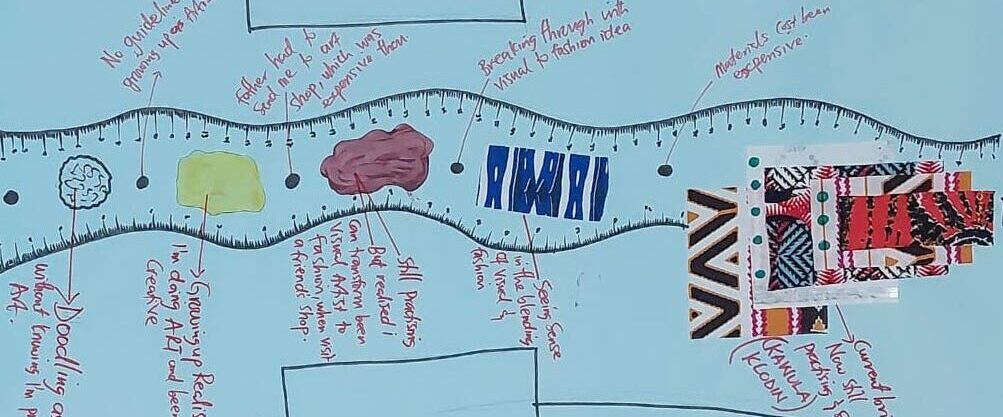 No guideline
growing up as Artist
Father had to
send me to art
shop, which was
expensive then.
Breaking through with
visual to fashion idea
Materials cost been
expensive.
Doodling
without knowing I'm
Art.
Growing up
I'm doing ART and been
Creative
still practising
But realised i
can transform been
Visual Artist to
fashion, when visit
a friend's shop.
Seeing sense
in the blending
of visual &
fashion
Currently
Now still
practising
(KAMULA
KLODIN)